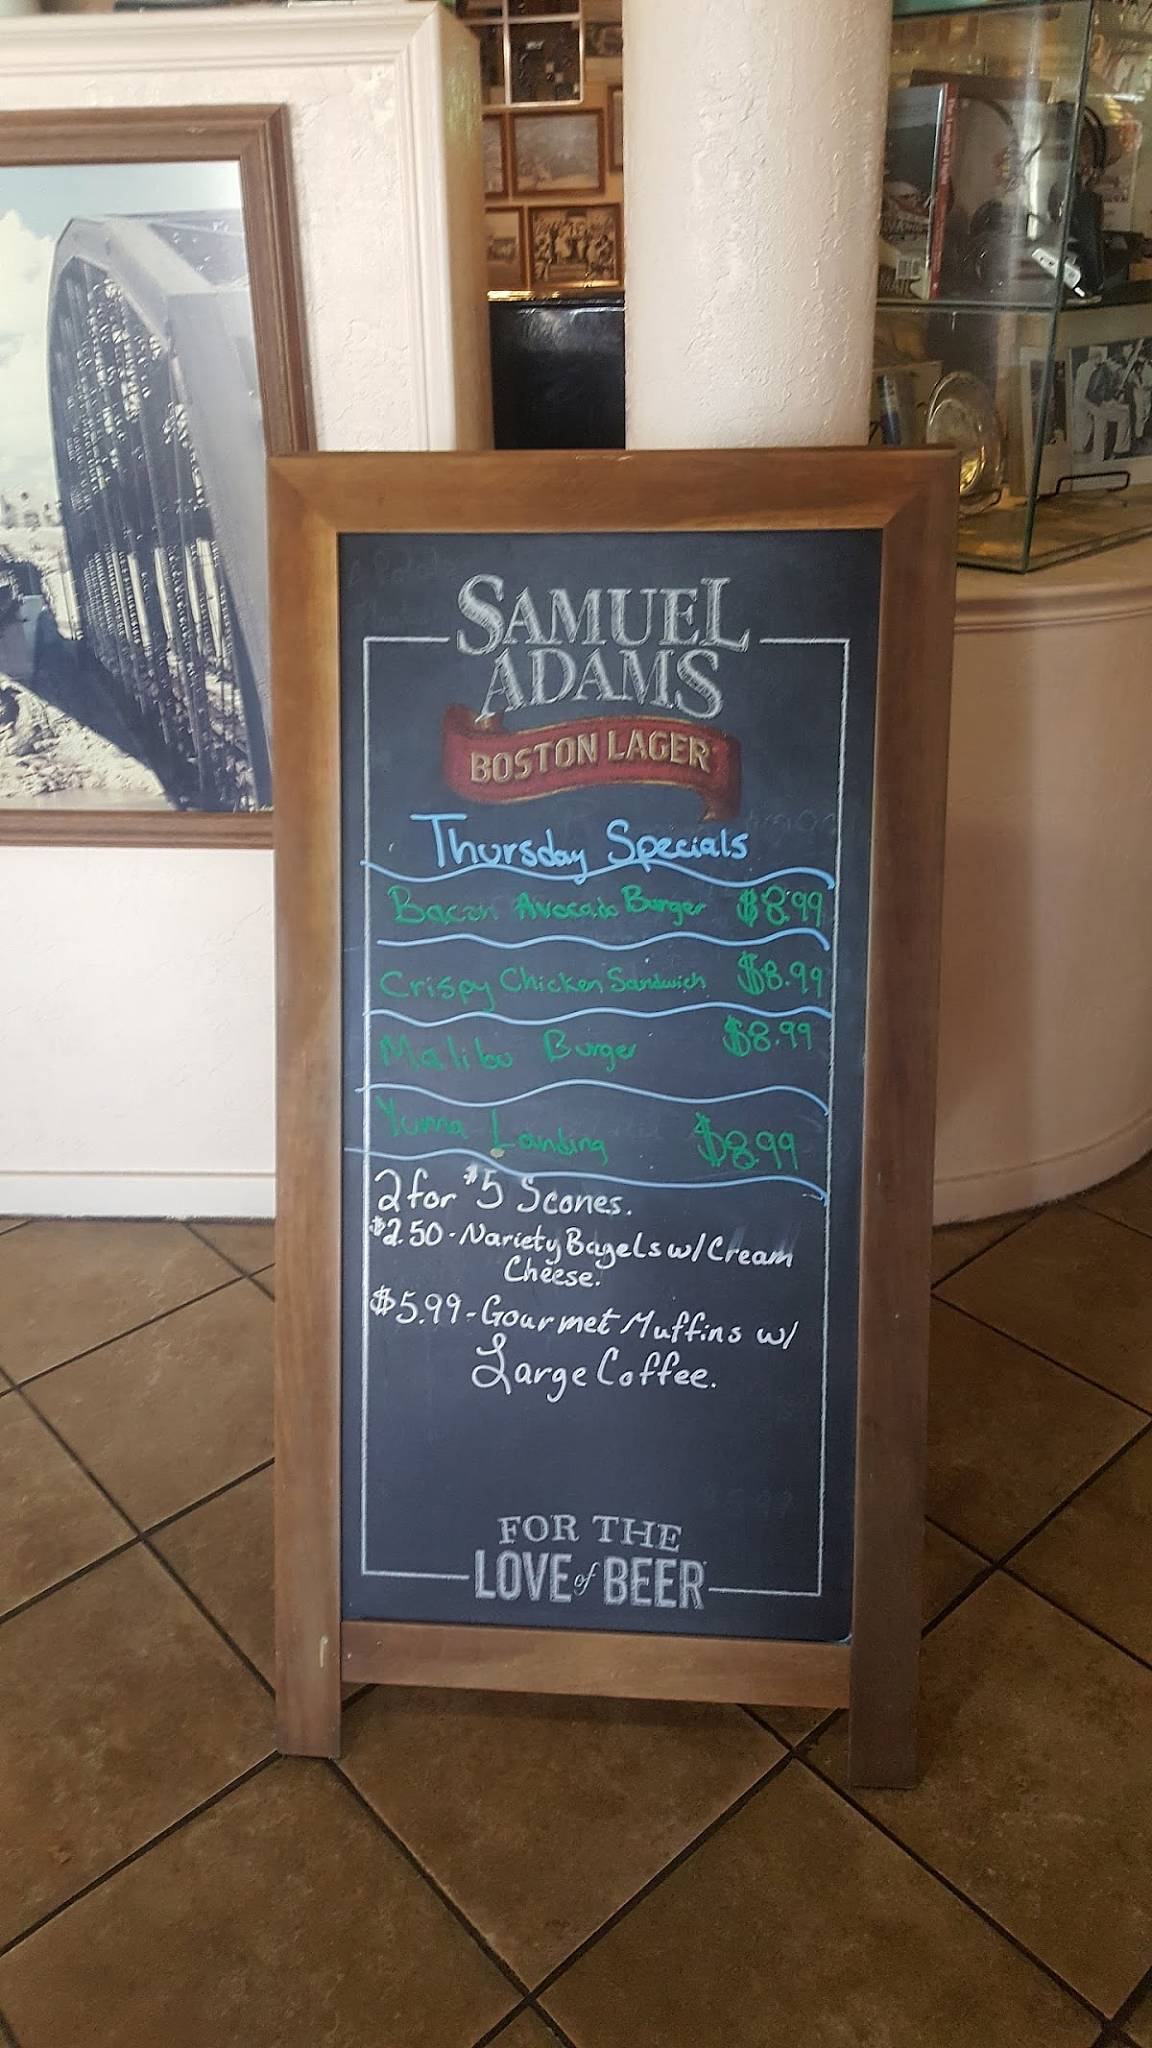 SAMUEL
ADAMS
BOSTON LAGER
Thursday Specials
Bacon Avocado Burger $8.99
Crispy Chicken Sandwich $8.99
Malibu Burger $8.99
Yuma Landing $8.99
2 for $5 Scones.
$2.50 - Nariety Bagels w/ Cream
Cheese.
$5.99 - Gourmet Muffins w/
Large Coffee.
FOR THE
LOVE of BEER